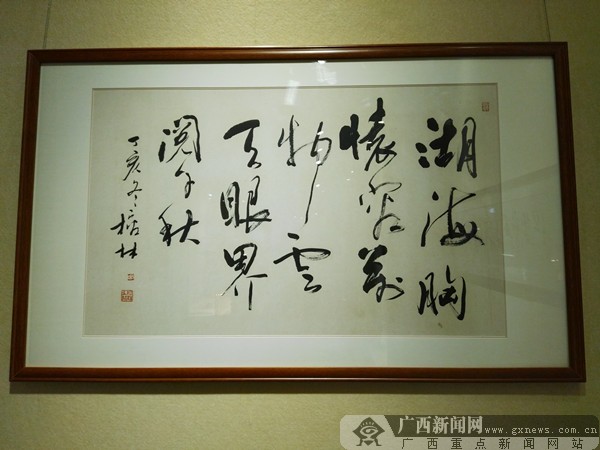 湖海胸
懷容萬
物雲
天眼界
閱千秋
丁亥冬林
广西新闻网
www.gxnews.com.cn
广西重点新闻网站